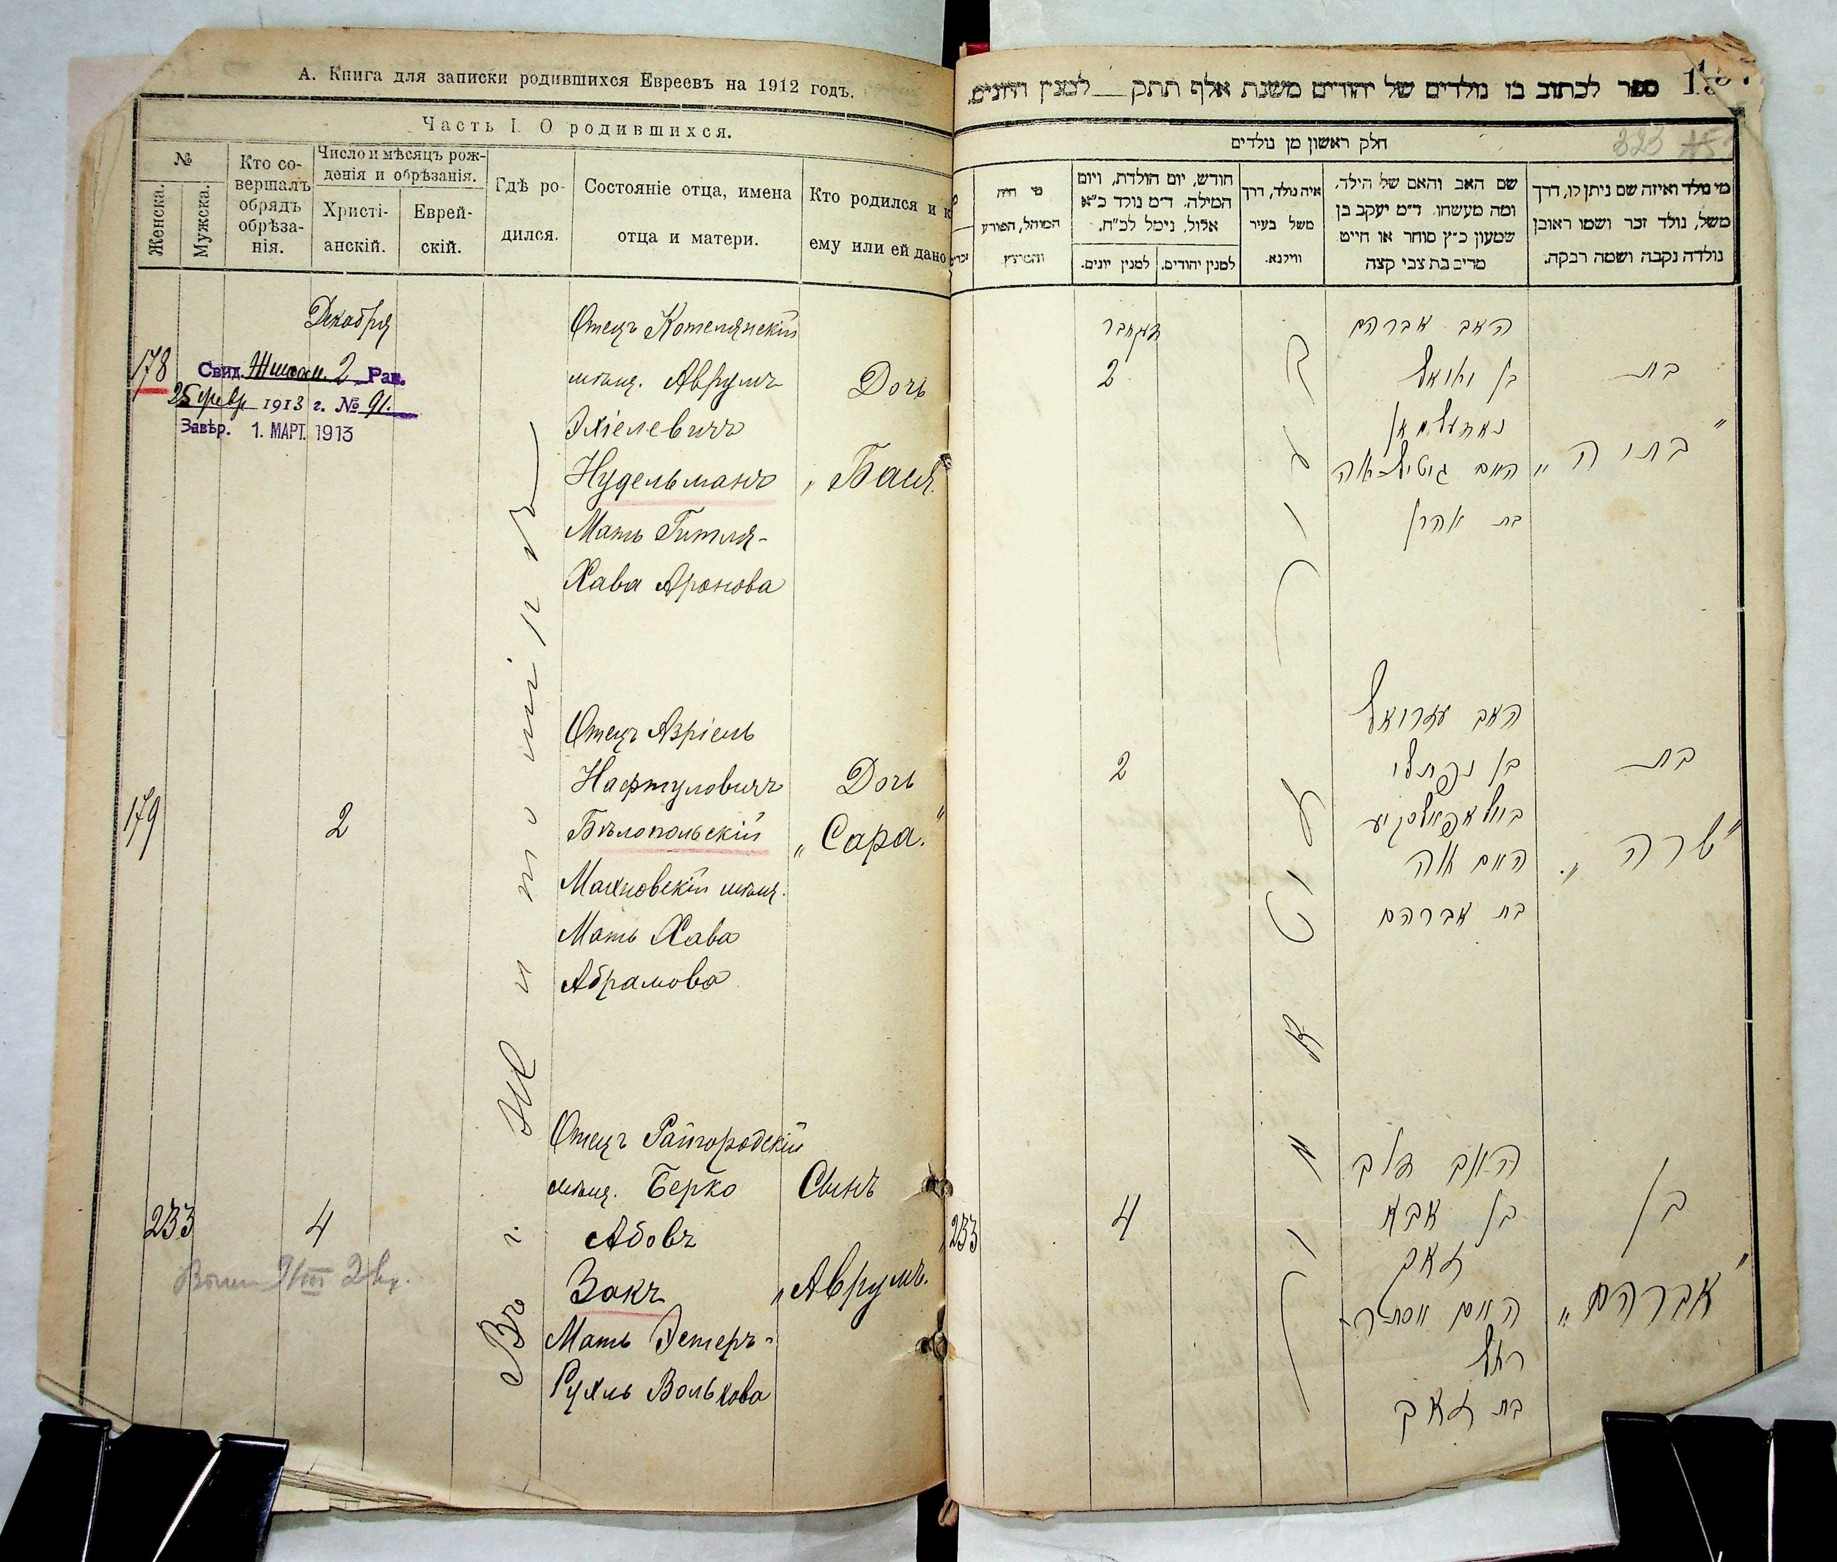 А. Книга для записки родившихся Евреевъ на 1912 годъ.
Часть I. О родившихся.
№
Женска.
Мужска.
Кто со-
вершалъ
обрядъ
обрѣза-
нія.
Число и мѣсяцъ рож-
денія и обрѣзанія.
Христі-
анскій.
Еврей-
скій.
Гдѣ ро-
дился.
Состояніе отца, имена
отца и матери.
Кто родился и к
ему или ей дано
Декабря
178
Свид. 2 Рав.
25 февр 1913 г. № 91.
Завѣр. 1. МАРТ. 1913
Отецъ Котелянскій
мѣщ. Аврумъ
Эхіелевичъ
Нудельманъ
Мать Гитля-
Хава Аронова
Дочь
„Бася“
Въ г. Житомірѣ
179
2
Отецъ Азріель
Нафтуловичъ
Бѣлопольскій
Махновскій мѣщ.
Мать Хава
Абрамова
Дочь
„Сара.“
233
4
Отецъ Райгородскій
мѣщ. Берко
Абовъ
Закъ
Мать Эстеръ-
Рухль Волькова
Сынъ
„Аврумъ.
ספר לכתוב בו נולדים של יהודים משנת אלף תתק למנין היונים.
חלק ראשון מן נולדים
323
מי נולד ואיזה שם ניתן לו, דרך
משל, נולד זכר ושמו ראובן
נולדה נקבה ושמה רבקה.
שם האב והאם של הילד,
ומה מעשהו. ד״מ יעקב בן
שמעון כ״ץ סוחר או חייט
מרים בת צבי קצה
איה נולד, דרך
משל בעיר
ווילנא.
חודש, יום הולדת, ויום
המילה. ד״מ נולד כ״א
אלול, נימל לכ״ח.
למנין יהודים.
למנין יונים.
מי היה
המוהל, הפורע
והמוצץ
דעקאבר
2
האב אברהם
בן יחיאל
נאדעלמאן
האם גיטל חוה
בת אהרן
בת
„בתיה“
2
האב עזריאל
בן נפתלי
ביעלאפאלסקיע
האם חוה
בת אברהם
בת
„שרה“
233
4
האב דוב
בן אבא
זאק
האם אסתר
רחל
בת זאב
בן
„אברהם“